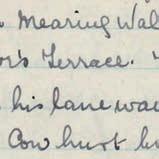 Mearing Wal
or's Terrace.
his lane wa
Cow hurt h